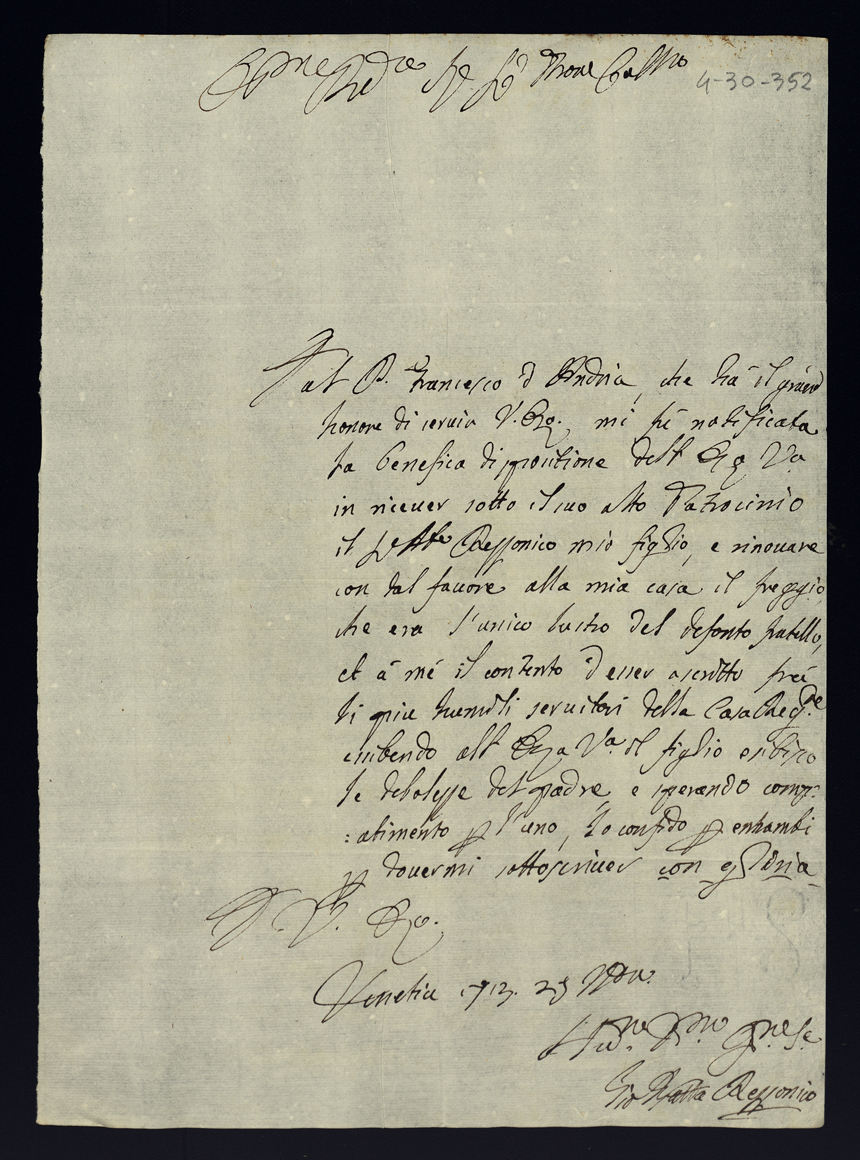 4-30-352
Dal P. Francesco d'Andria, che hà il grand
honore di servir V. Ecc. mi fù notificata
la benefica dispositione dell' Ecc. Va
in ricever sotto il suo alto Patrocinio
il Rezzonico mio figlio, e rinovare
con tal favore alla mia casa il freggio
che era l'unico lustro del defonto fratello,
et à mé il contento d'esser ascritto frà
li piu humili servitori della Casa
esibendo all' Ecc. Va il figlio
le debolezze del padre, e sperando comp:
:atimento p l'uno, lo confido p entrambi
p dovermi sottoscriver con gloria
D. V. Ecc.
Venetia 1712. 25 Nov.
Gio Batta Rezzonico